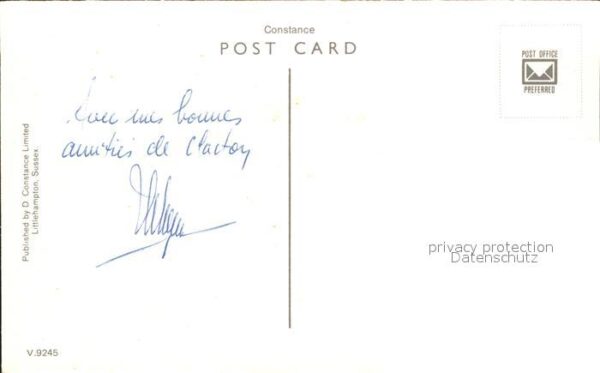 Constance
POST CARD
POST OFFICE
PREFERRED
Avec mes bonnes
amitiés de Clacton
Published by D. Constance Limited
Littlehampton, Sussex.
privacy protection
Datenschutz
V.9245